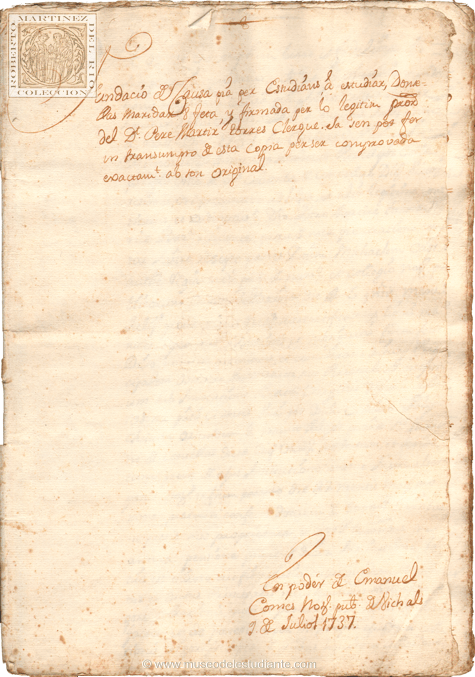 ROBERTO MARTINEZ DEL RIO
COLECCION
Fundació d Causa pia per Estudians á estudiar, Donse-
llas Maridar & feta y firmada per lo legitim pror
del Dr. Pere Martir Torres Clergue. Sa sen pot fer
un transumpro d esta Copia per ser comprovada
exactamt. ab son original
En podér d Emanuel
Comes Not. pub. d
9. d Juliol 1737.
© www.museodelestudiante.com